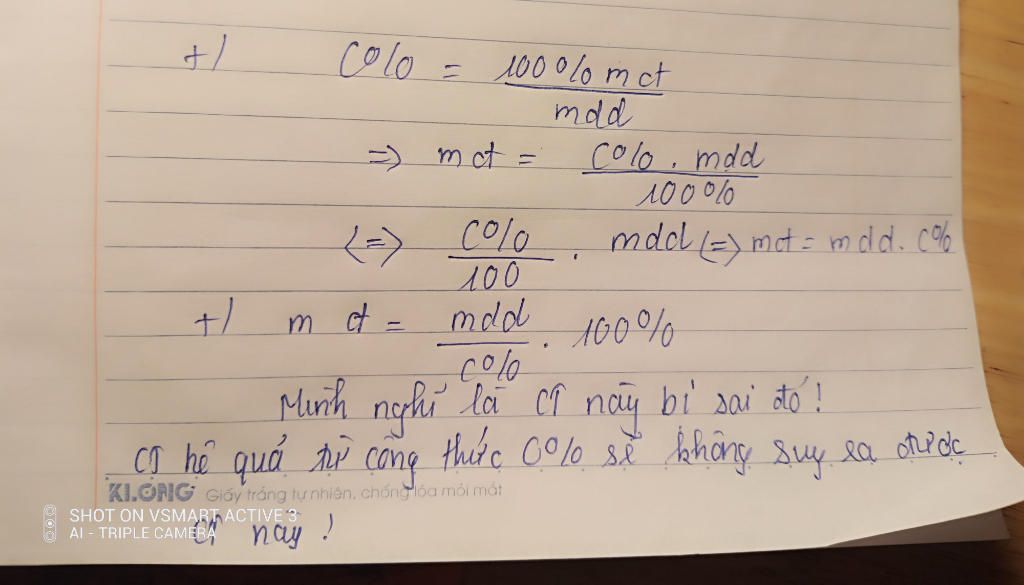 +/ C% = 100% mct / mdd
=> mct = C% . mdd / 100%
<=> C% / 100 . mdd <=> mct = mdd. C%
+/ mct = mdd / C% . 100%
Mình nghĩ là CT này bị sai đó!
CT hệ quả từ công thức C% sẽ không suy ra được
KLONG Giấy trắng tự nhiên, chống lóa mỏi mắt
CT này!
SHOT ON VSMART ACTIVE 3
AI - TRIPLE CAMERA